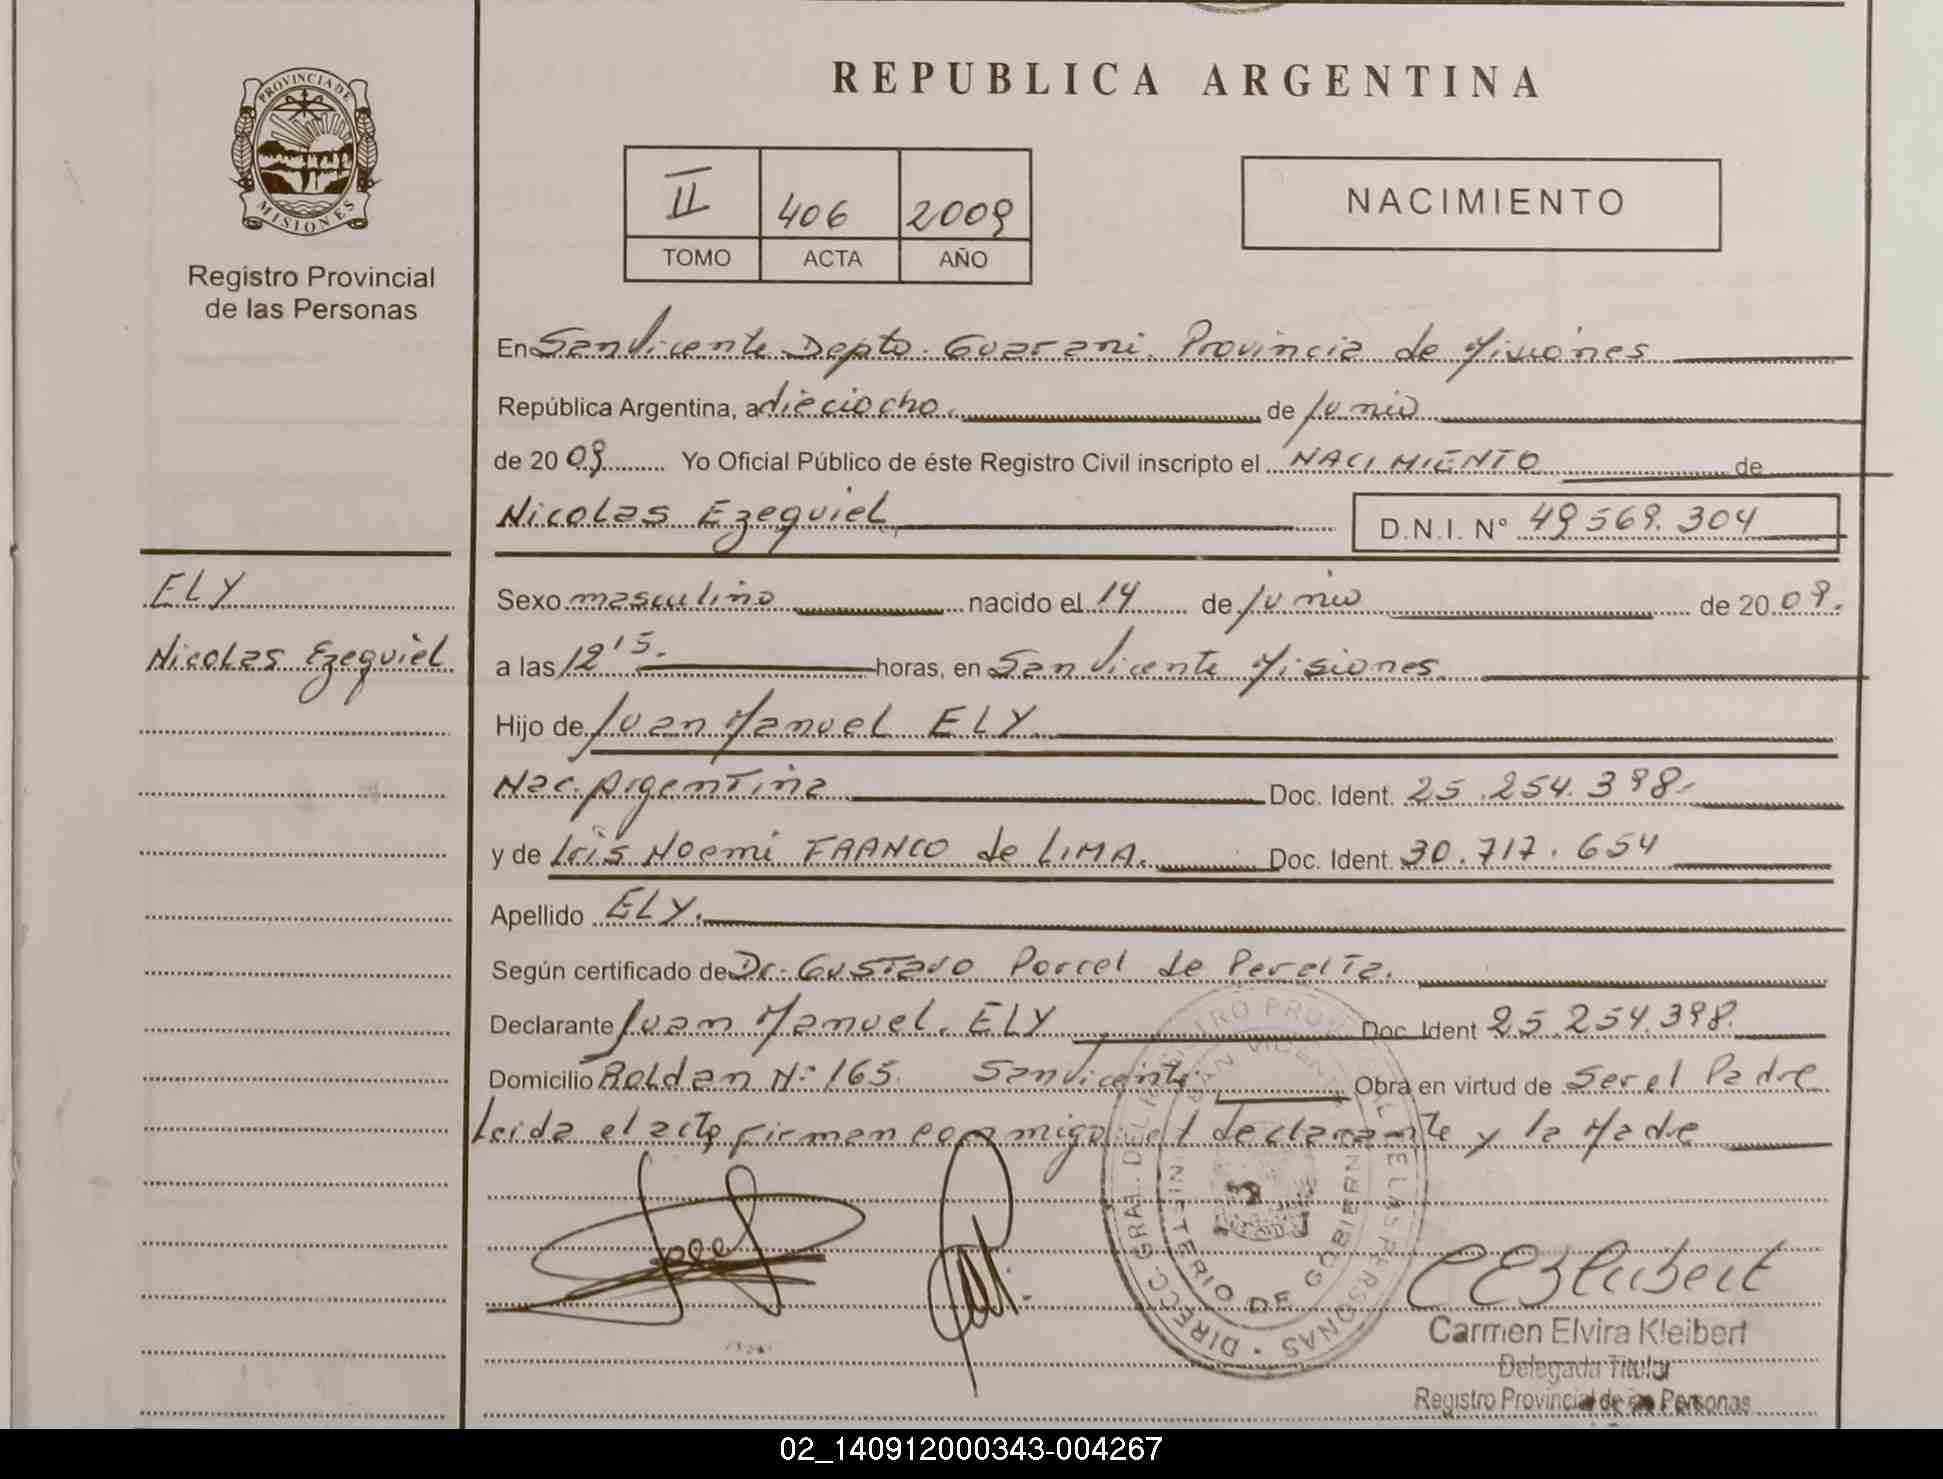 PROVINCIA DE
MISIONES
Registro Provincial
de las Personas
ELY
Nicolas Ezequiel
REPUBLICA ARGENTINA
II 406 2009
TOMO ACTA AÑO
NACIMIENTO
En San Vicente Depto. Guarani. Provincia de Misiones
República Argentina, a dieciocho. de Junio
de 20 09 Yo Oficial Público de éste Registro Civil inscripto el NACIMIENTO de
Nicolas Ezequiel D.N.I. Nº 49569.304
Sexo masculino nacido el 14 de Junio de 20 09.
a las 12 15. horas, en San Vicente Misiones
Hijo de Juan Manuel ELY
Nac. Argentina Doc. Ident. 25.254.398.
y de Iris Noemi FRANCO de LIMA. Doc. Ident. 30.717.654
Apellido ELY.
Según certificado de Dr. Gustavo Porcel de Peralta.
Declarante Juan Manuel. ELY Doc. Ident 25.254.398.
Domicilio Roldan Nº 165. San Vicente Obra en virtud de Ser el Padre
Leida el acto firman conmigo el declarante y la Madre
DIRECC. GRAL. DEL REGISTRO PROVINCIAL DE LAS PERSONAS
SAN VICENTE
MINISTERIO DE GOBIERNO
CEKleibert
Carmen Elvira Kleibert
Delegada Titular
Registro Provincial de las Personas
02_140912000343-004267